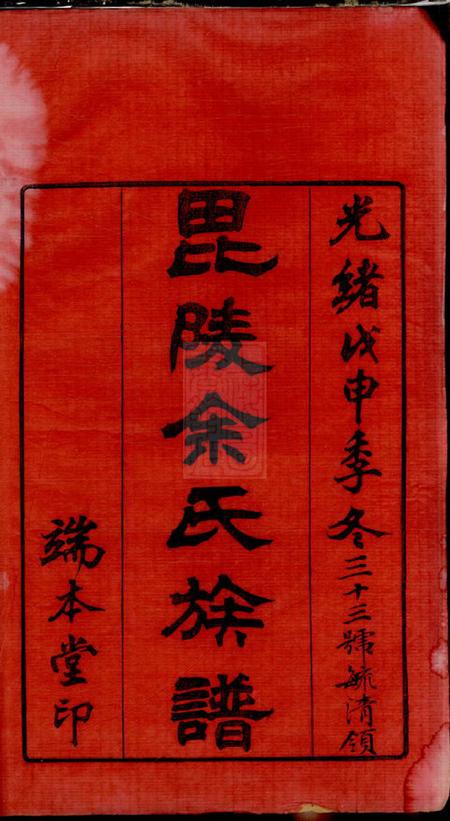 光緒戊申季冬三十三號毓清領
毘陵余氏族譜
端本堂印